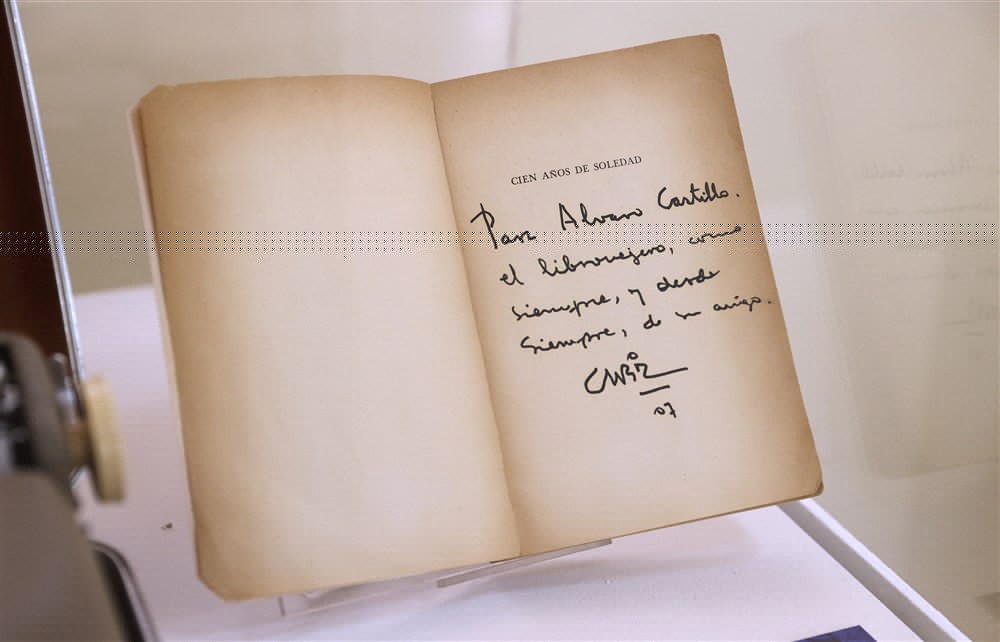 CIEN AÑOS DE SOLEDAD
Para Alvaro Castillo.
el librovejero, como
siempre, y desde
siempre, de su amigo.
07